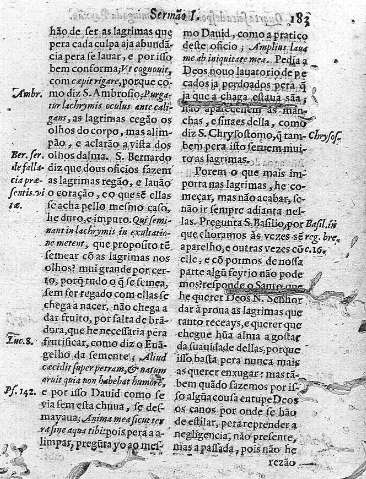 Sermão I. 183
hão de ser as lagrimas que
pera cada culpa aja abundã
cia pera se lauar, e por isso
bem conforma; Vt cognouit,
cœpit rigare, porque co-
Ambr.
mo diz S. Ambrosio, Purga-
tur lachrymis oculus ante cali-
gans, as lagrimas cegão os
olhos do corpo, mas alim-
pão, e aclarão a vista dos
Ber. ser.
olhos dalma. S. Bernardo
de falla-
diz que dous officios fazem
cia præ-
as lagrimas regão, e lauão
sentis vi
o coração, co que sẽ ellas
tæ.
se acha pello mesmo caso
he duro, e impuro. Qui semi-
nant in lachrymis in exultatio-
ne metent, que proposito tẽ
semear cõ as lagrimas nos
olhos? mui grande por cer-
to, porq̃ tudo q̃ se semea,
sem ser regado com ellas se
chega a nacer, não chega a
dar fruito, por falta de brã-
dura, que he necessaria pera
Luc. 8.
frutificar, como diz o Euã-
gelho da semente; Aliud
cæcidit super petram, & natum
aruit quia non habebat humorẽ,
Ps. 142.
e por isso Dauid como se
via sem esta chuua, se des-
mayaua; Anima mea sicut ter
ra sine aqua tibi: pois pera a a-
limpar, pregũta yo ao mes-
mo Dauid, como a pratico
deste officio; Amplius laua
me ab iniquitate mea. Pedia a
Deos nouo lauatorio de pe
cados ja perdoados pera q̃
ja que a chaga estaua sãa,
não aparecessem as man-
chas, e sinaes della, como
diz S. Chrysostomo, q̃ tam
Chrysos.
bem pera isto seruem mui-
to as lagrimas.
Porem o que mais im-
porta nas lagrimas, he co
meçar, mas não acabar, se-
não ir sempre adiante nel-
las. Pregunta S. Basilio, por
Basil. in
que choramos às vezes sẽ
reg. bre.
aparelho, e outras vezes cõ
c. 16.
elle, e cõ pormos de nossa
parte algũ feyrio não pode
mos? responde o Santo que
he querer Deos N. Senhor
dar à proua as lagrimas que
tanto receays, e querer que
chegue hũa alma a gostar
da suauidade dellas, porque
isso basta pera nunca mais
as querer enxugar: mas tã-
bem quãdo fazemos por is-
so algũa cousa entupe Deos
os canos por onde se hão
de estilar, pera reprender a
negligencia, não presente,
mas a passada, pois não he
rezão